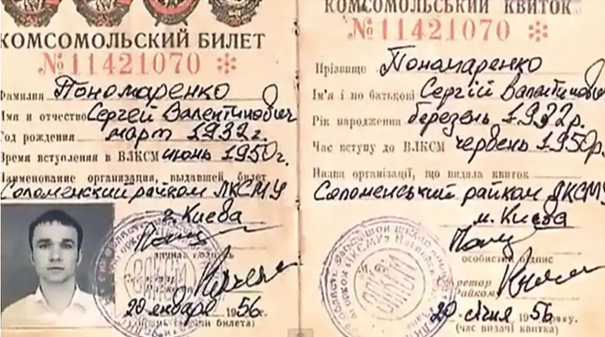 КОМСОМОЛЬСКИЙ БИЛЕТ
№ 11421070 *
Фамилия Пономаренко
Имя и отчество Сергей Валентинович
Год рождения март 1932 г.
Время вступления в ВЛКСМ июнь 1950г.
Наименование организации, выдавшей билет
Соломенский райком ЛКСМУ
г. Киева
20 января 1956 г.
(день выдачи билета)
КОМСОМОЛЬСЬКИЙ КВИТОК
№ 11421070 *
Прізвище Пономаренко
Ім'я і по батькові Сергій Валентинович
Рік народження березень 1932р.
Час вступу до ВЛКСМ червень 1950р.
Назва організації, що видала квиток
Соломенський райком ЛКСМУ
м. Києва
особистий підпис
Райкому
20 січня 1956 року.
(час видачі квитка)